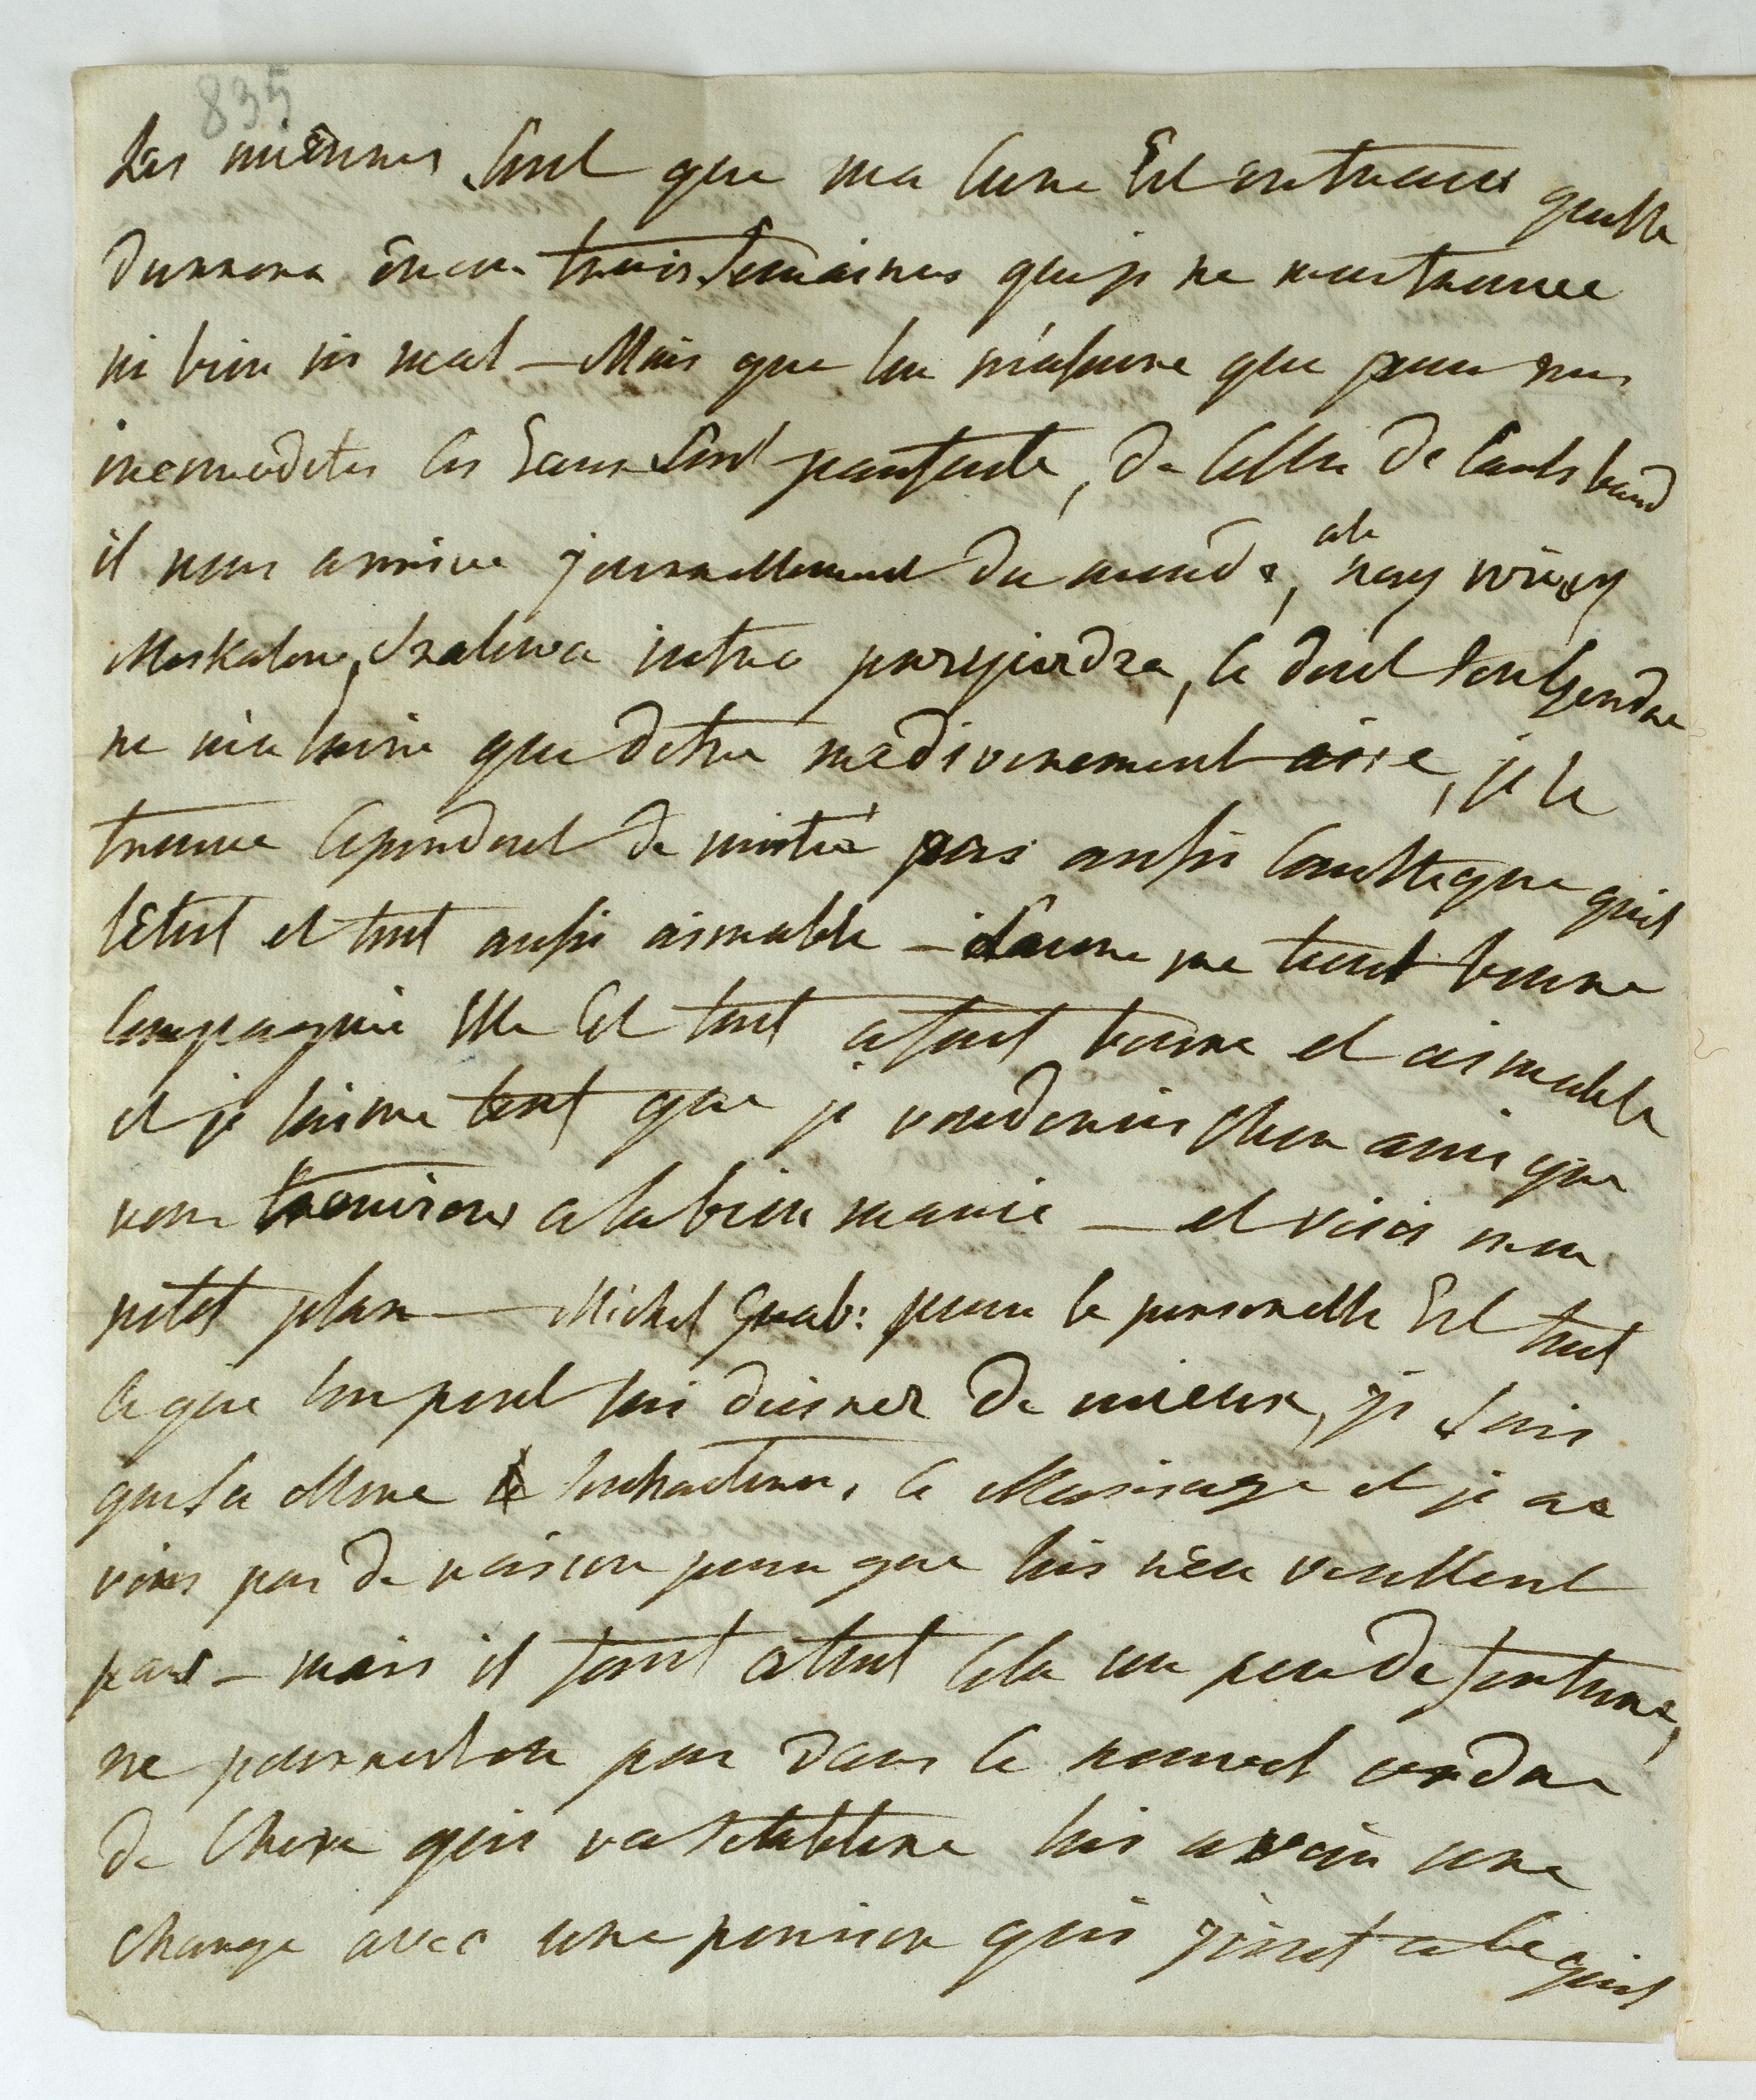 835
Les miennes sont que ma cure Est entrain qu'elle
durrera encor trois Semaines que je ne men trouve
ni bien ni mal — Mais que l'on m'assure que pour mes
incomodites les Eaux sont parfaite, de Celle de Carlsbaad
il nous arrive journellement du monde, ale nay wiecy
Moskalow, Szalewa jutro przyjerdza, le dont Son Gendre
ne m'a mine que detre mediocrement aise, je le
trouve Cependant de moitié pas aussi Caustique quil
letoit et tout aussi aimable — Laure me tient bonne
Compagnie Elle Est tout afait bonne et aimable
et je laime tant que je vouderais cher ami que
nous trouvions a la bien marié — et voici mon
petit plan — Michel Grab: pour le personelle Est tout
ce que lon peut lui doiner de mieux, je Sais
que sa Mere souhaiteroi, ce Marisage et je ne
vois pas de raison pour que lui n'en veuillent
pas — mais il faut atout cela un peu de fortune,
ne pourroit on pas dans le nouvel ordre
de Chose qui va setablire lui avoir une
charge avec une pension qui joint a ce quil